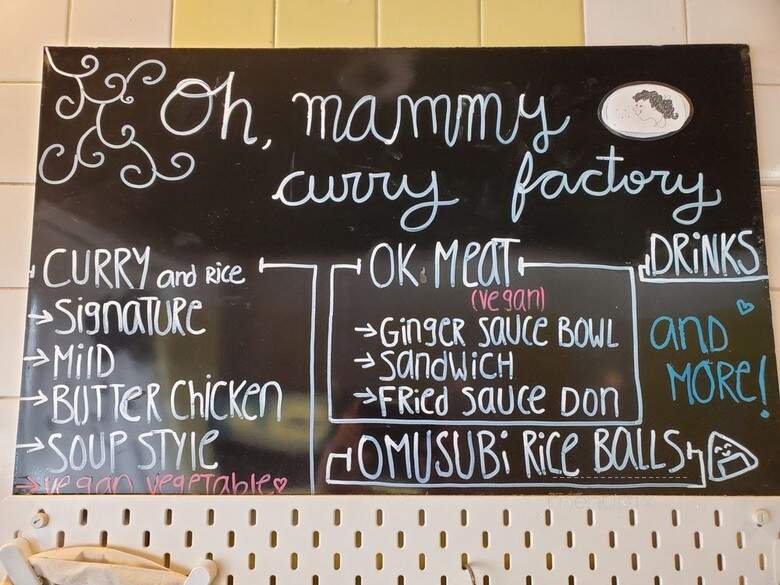 Oh, mammy
curry factory
CURRY and RICE
→ Signature
→ Mild
→ Butter Chicken
→ Soup Style
→ vegan vegetable ♡
OK MeaT
(vegan)
→ Ginger Sauce Bowl
→ Sandwich
→ Fried Sauce Don
OMUSUBi Rice Balls
DRiNKS
and ♡
MORE!